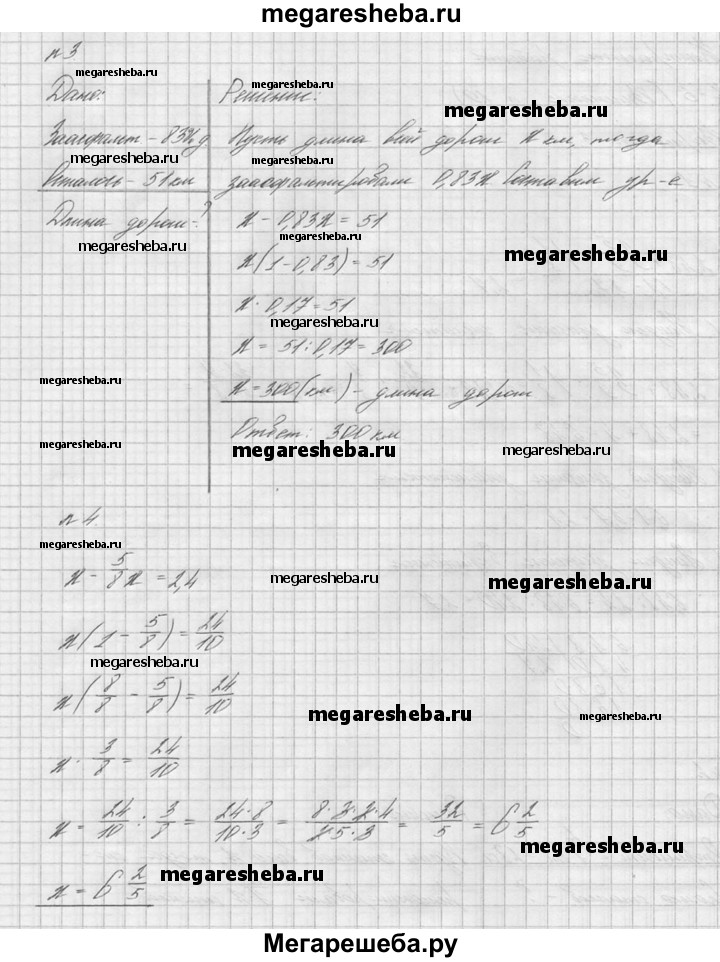 megaresheba.ru
n 3
megaresheba.ru
megaresheba.ru
Дано:
Решение:
megaresheba.ru
Заасфальт - 83% д
Пусть длина всей дороги x км, тогда
megaresheba.ru
megaresheba.ru
Осталось - 51 км
заасфальтировали 0,83x Составим ур-е
Длина дороги - ?
x - 0,83x = 51
megaresheba.ru
megaresheba.ru
megaresheba.ru
x(1-0,83) = 51
x · 0,17 = 51
megaresheba.ru
x = 51 : 0,17 = 300
megaresheba.ru
x = 300 (км) - длина дороги
Ответ: 300 км
megaresheba.ru
megaresheba.ru
megaresheba.ru
n 4.
megaresheba.ru
x - 5/8 x = 2,4
megaresheba.ru
megaresheba.ru
x(1 - 5/8) = 24/10
megaresheba.ru
x(8/8 - 5/8) = 24/10
megaresheba.ru
megaresheba.ru
x · 3/8 = 24/10
x = 24/10 : 3/8 = 24·8/10·3 = 8·3·2·4/2·5·3 = 32/5 = 6 2/5
megaresheba.ru
x = 6 2/5
megaresheba.ru
megaresheba.ru
Мегарешеба.ру